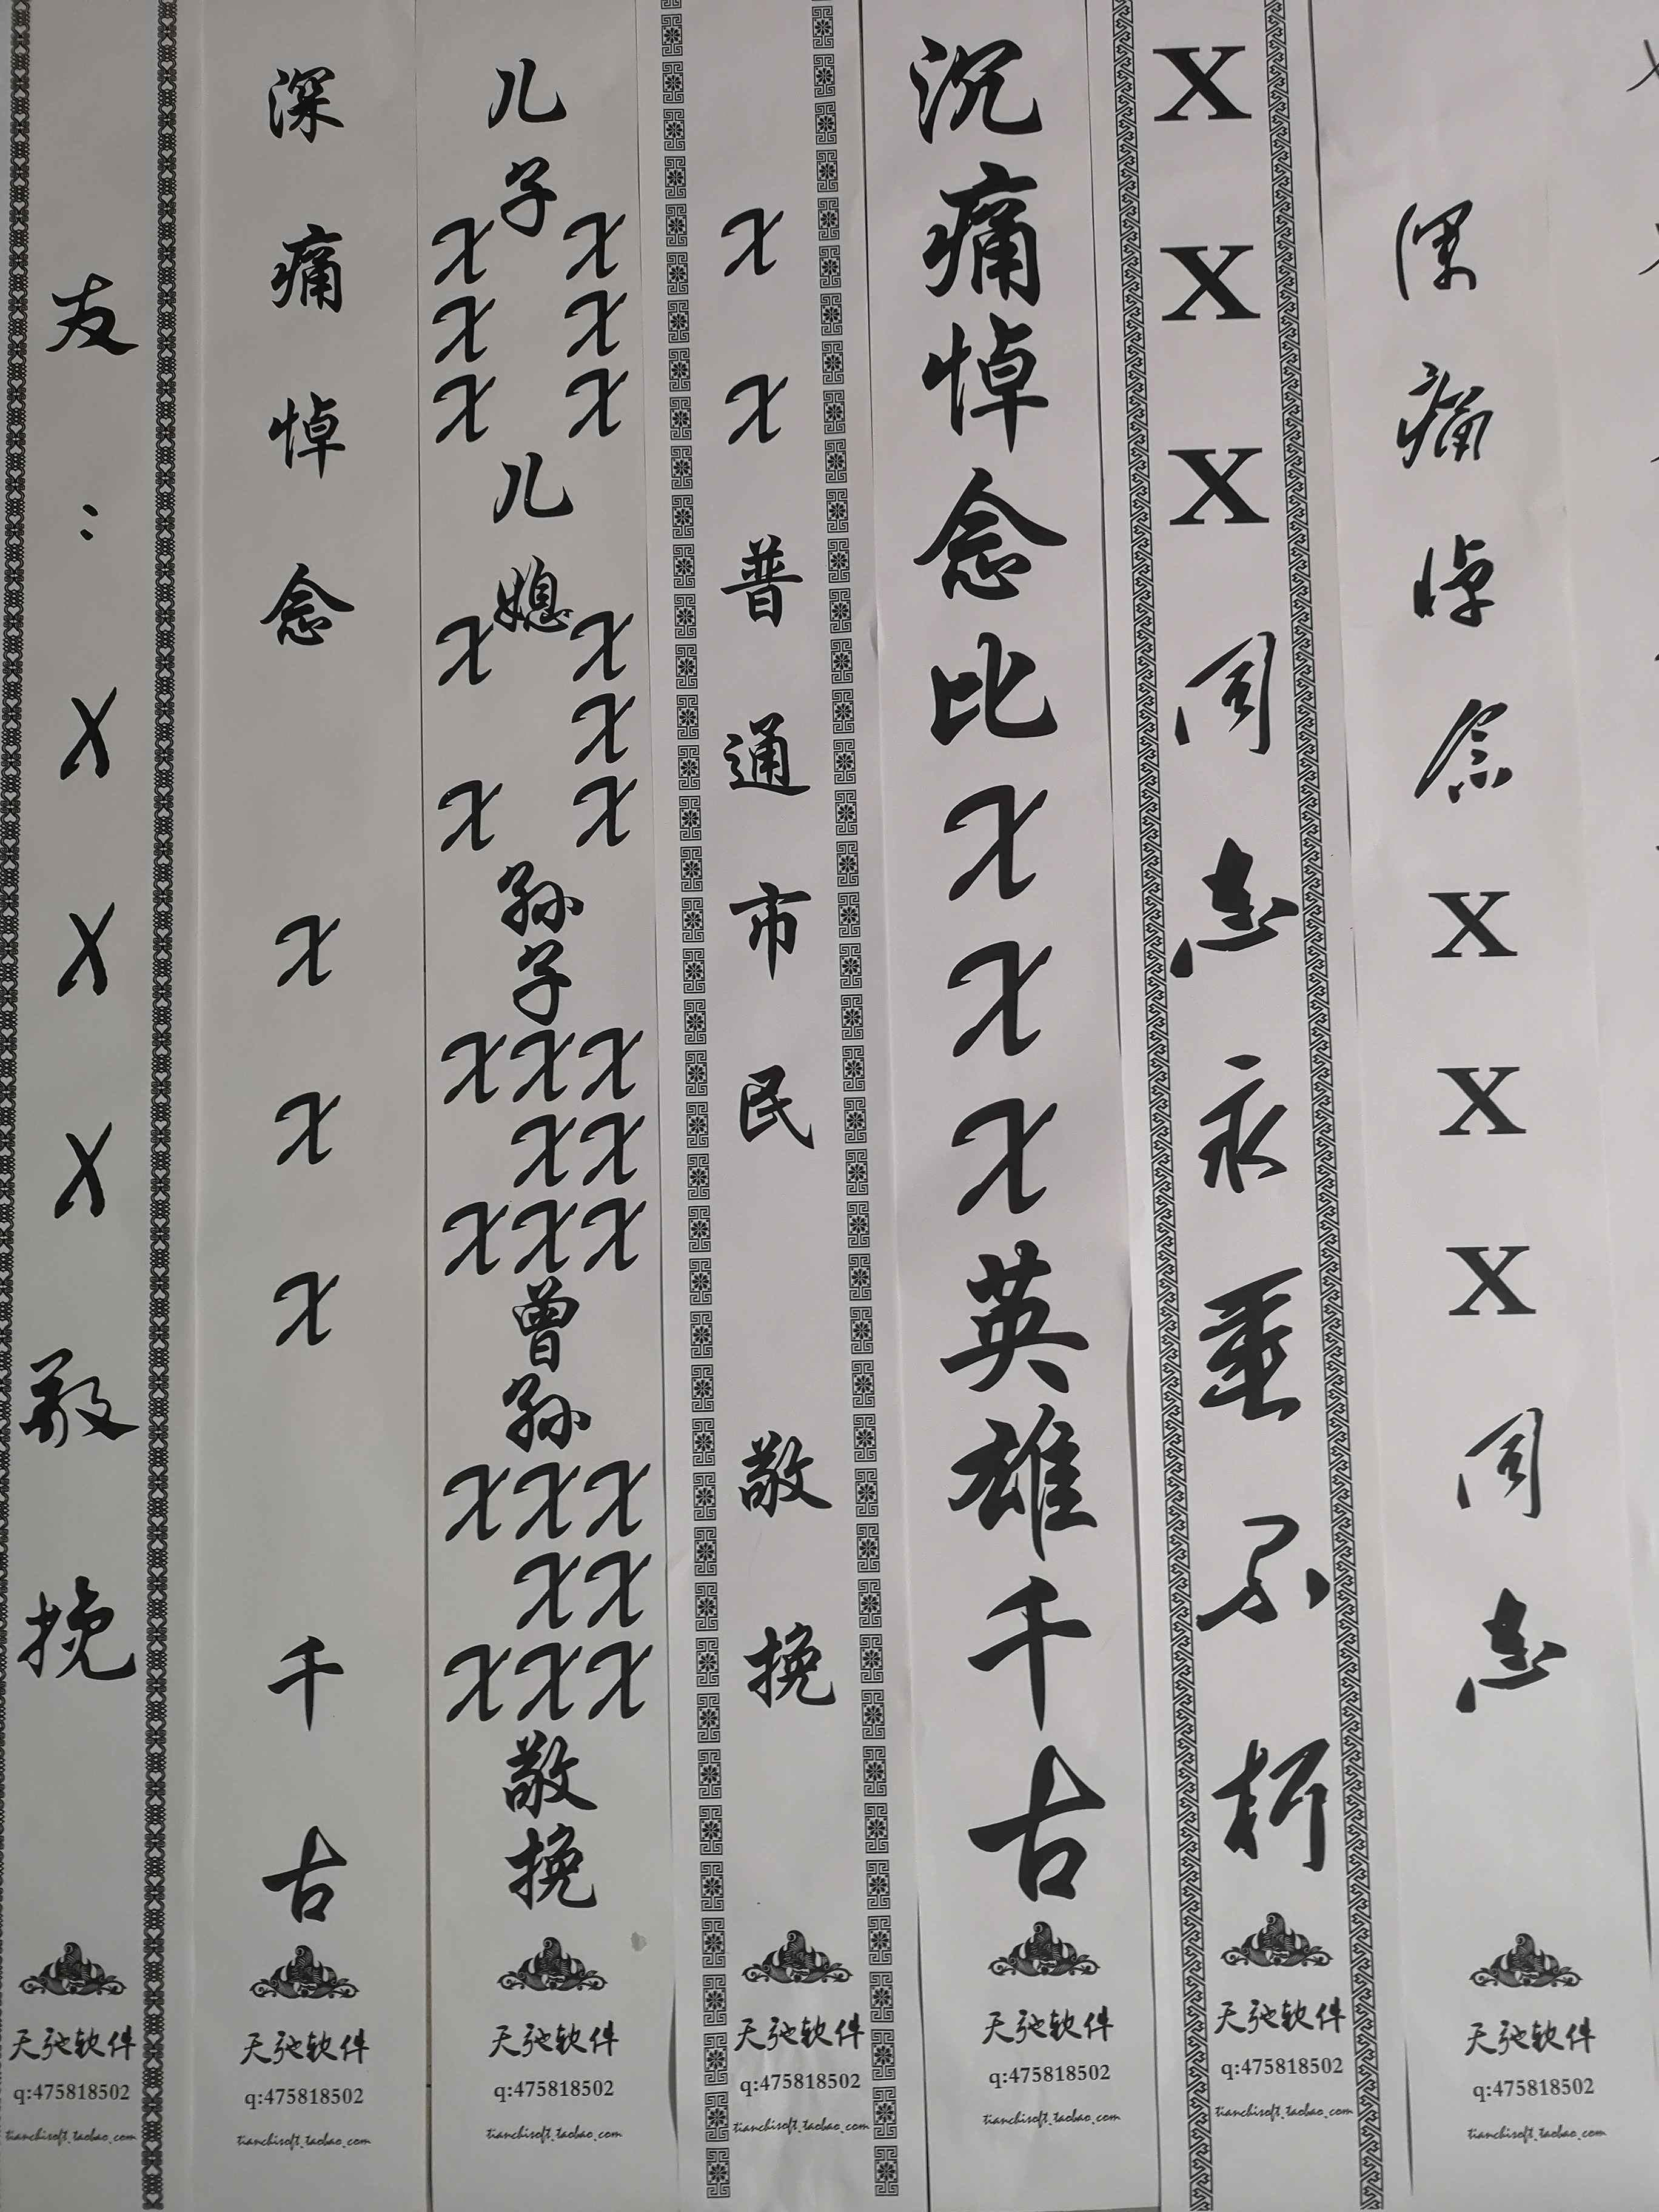 友：XXX敬挽
天弛软件
q:475818502
tianchisoft.taobao.com
深痛悼念XXX千古
天弛软件
q:475818502
tianchisoft.taobao.com
儿子
X X
X X
X X
儿媳
X X
X
X X
孙子
XXX
XX
XXX
曾孙
XXX
XX
XXX
敬挽
天弛软件
q:475818502
tianchisoft.taobao.com
XX普通市民敬挽
天弛软件
q:475818502
tianchisoft.taobao.com
沉痛悼念比XXX英雄千古
天弛软件
q:475818502
tianchisoft.taobao.com
XXX同志永垂不朽
天弛软件
q:475818502
tianchisoft.taobao.com
深痛悼念XXX同志
天弛软件
q:475818502
tianchisoft.taobao.com